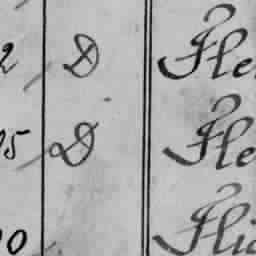 2 D Fle
5 D Fle
0 Fli